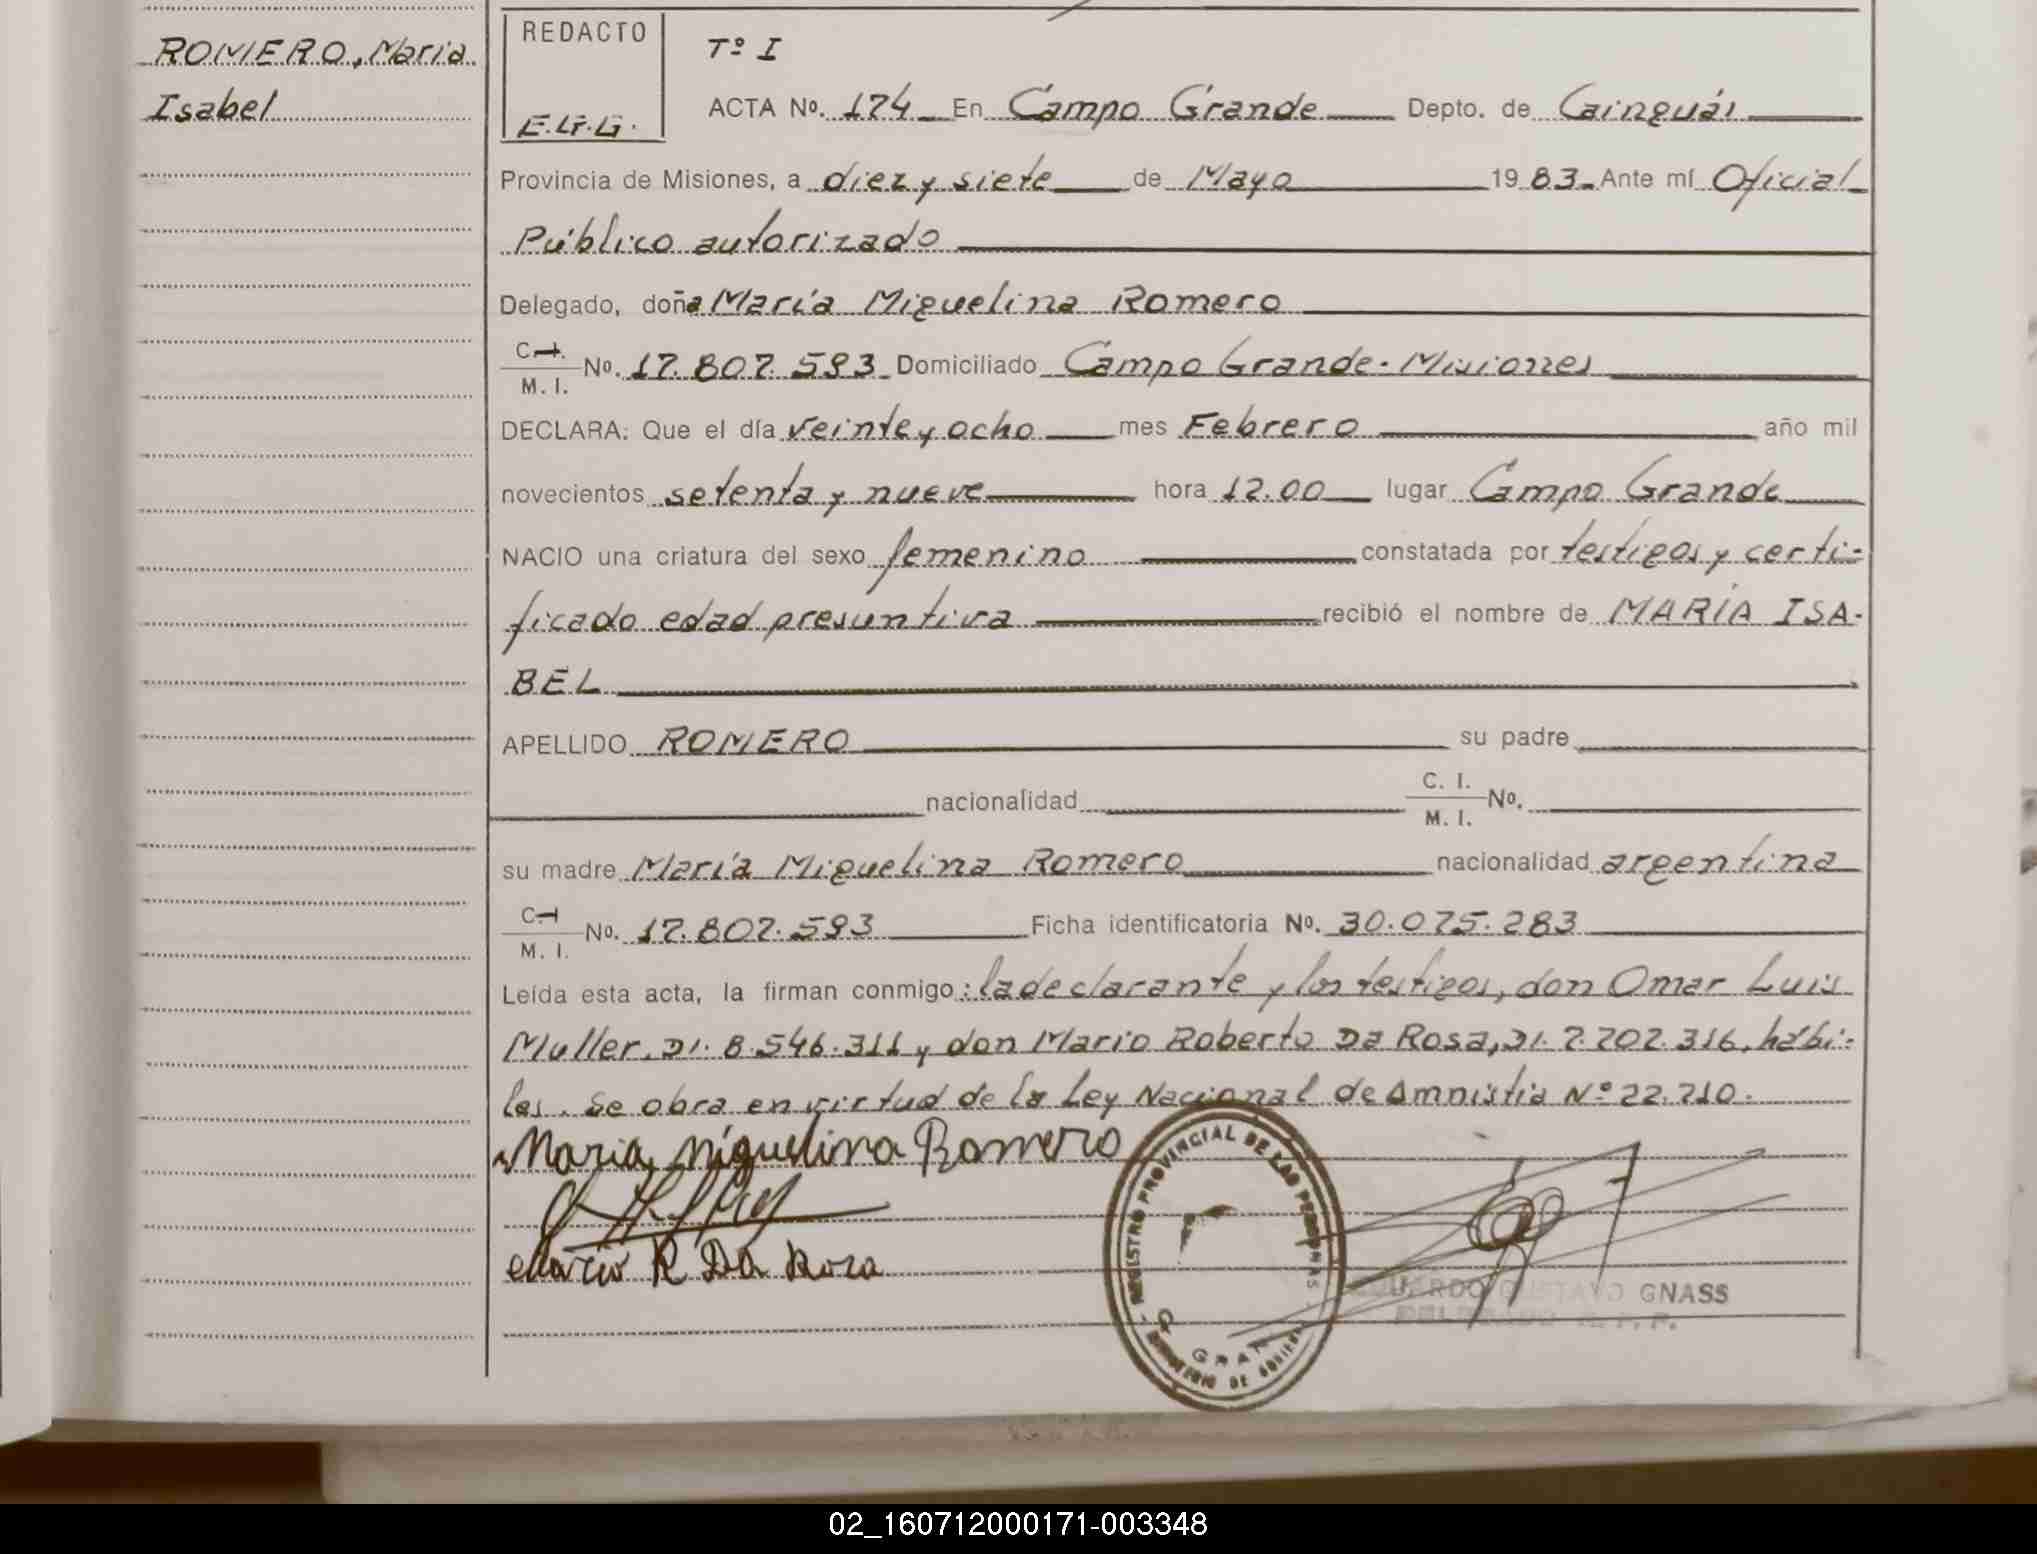 ROMERO, Maria
Isabel
REDACTO
E.G.G.
Tº I
ACTA Nº. 174 En Campo Grande Depto. de Cainguás
Provincia de Misiones, a diez y siete de Mayo 1983 Ante mí Oficial
Público autorizado
Delegado, doña María Miguelina Romero
C.I. M. I. Nº. 17.807.593 Domiciliado Campo Grande-Misiones
DECLARA: Que el día veinte y ocho mes Febrero año mil
novecientos setenta y nueve hora 12.00 lugar Campo Grande
NACIO una criatura del sexo femenino constatada por testigos y certi-
ficado edad presuntiva recibió el nombre de MARÍA ISA-
BEL
APELLIDO ROMERO su padre
nacionalidad C. I. M. I. Nº.
su madre María Miguelina Romero nacionalidad argentina
C.I. M. I. Nº. 17.807.593 Ficha identificatoria Nº. 30.075.283
Leída esta acta, la firman conmigo: la declarante y los testigos, don Omar Luis
Muller, DI. 8.546.311 y don Mario Roberto Da Rosa, DI. 7.707.316, hábi-
les. Se obra en virtud de la Ley Nacional de Amnistia Nº 22.710.
Maria Miguelina Romero
Mario R Da Rosa
REGISTRO PROVINCIAL DE LAS PERSONAS
MINISTERIO DE GOBIERNO
EDUARDO GUSTAVO GNASS
DELEGADO R. P. P.
02_160712000171-003348